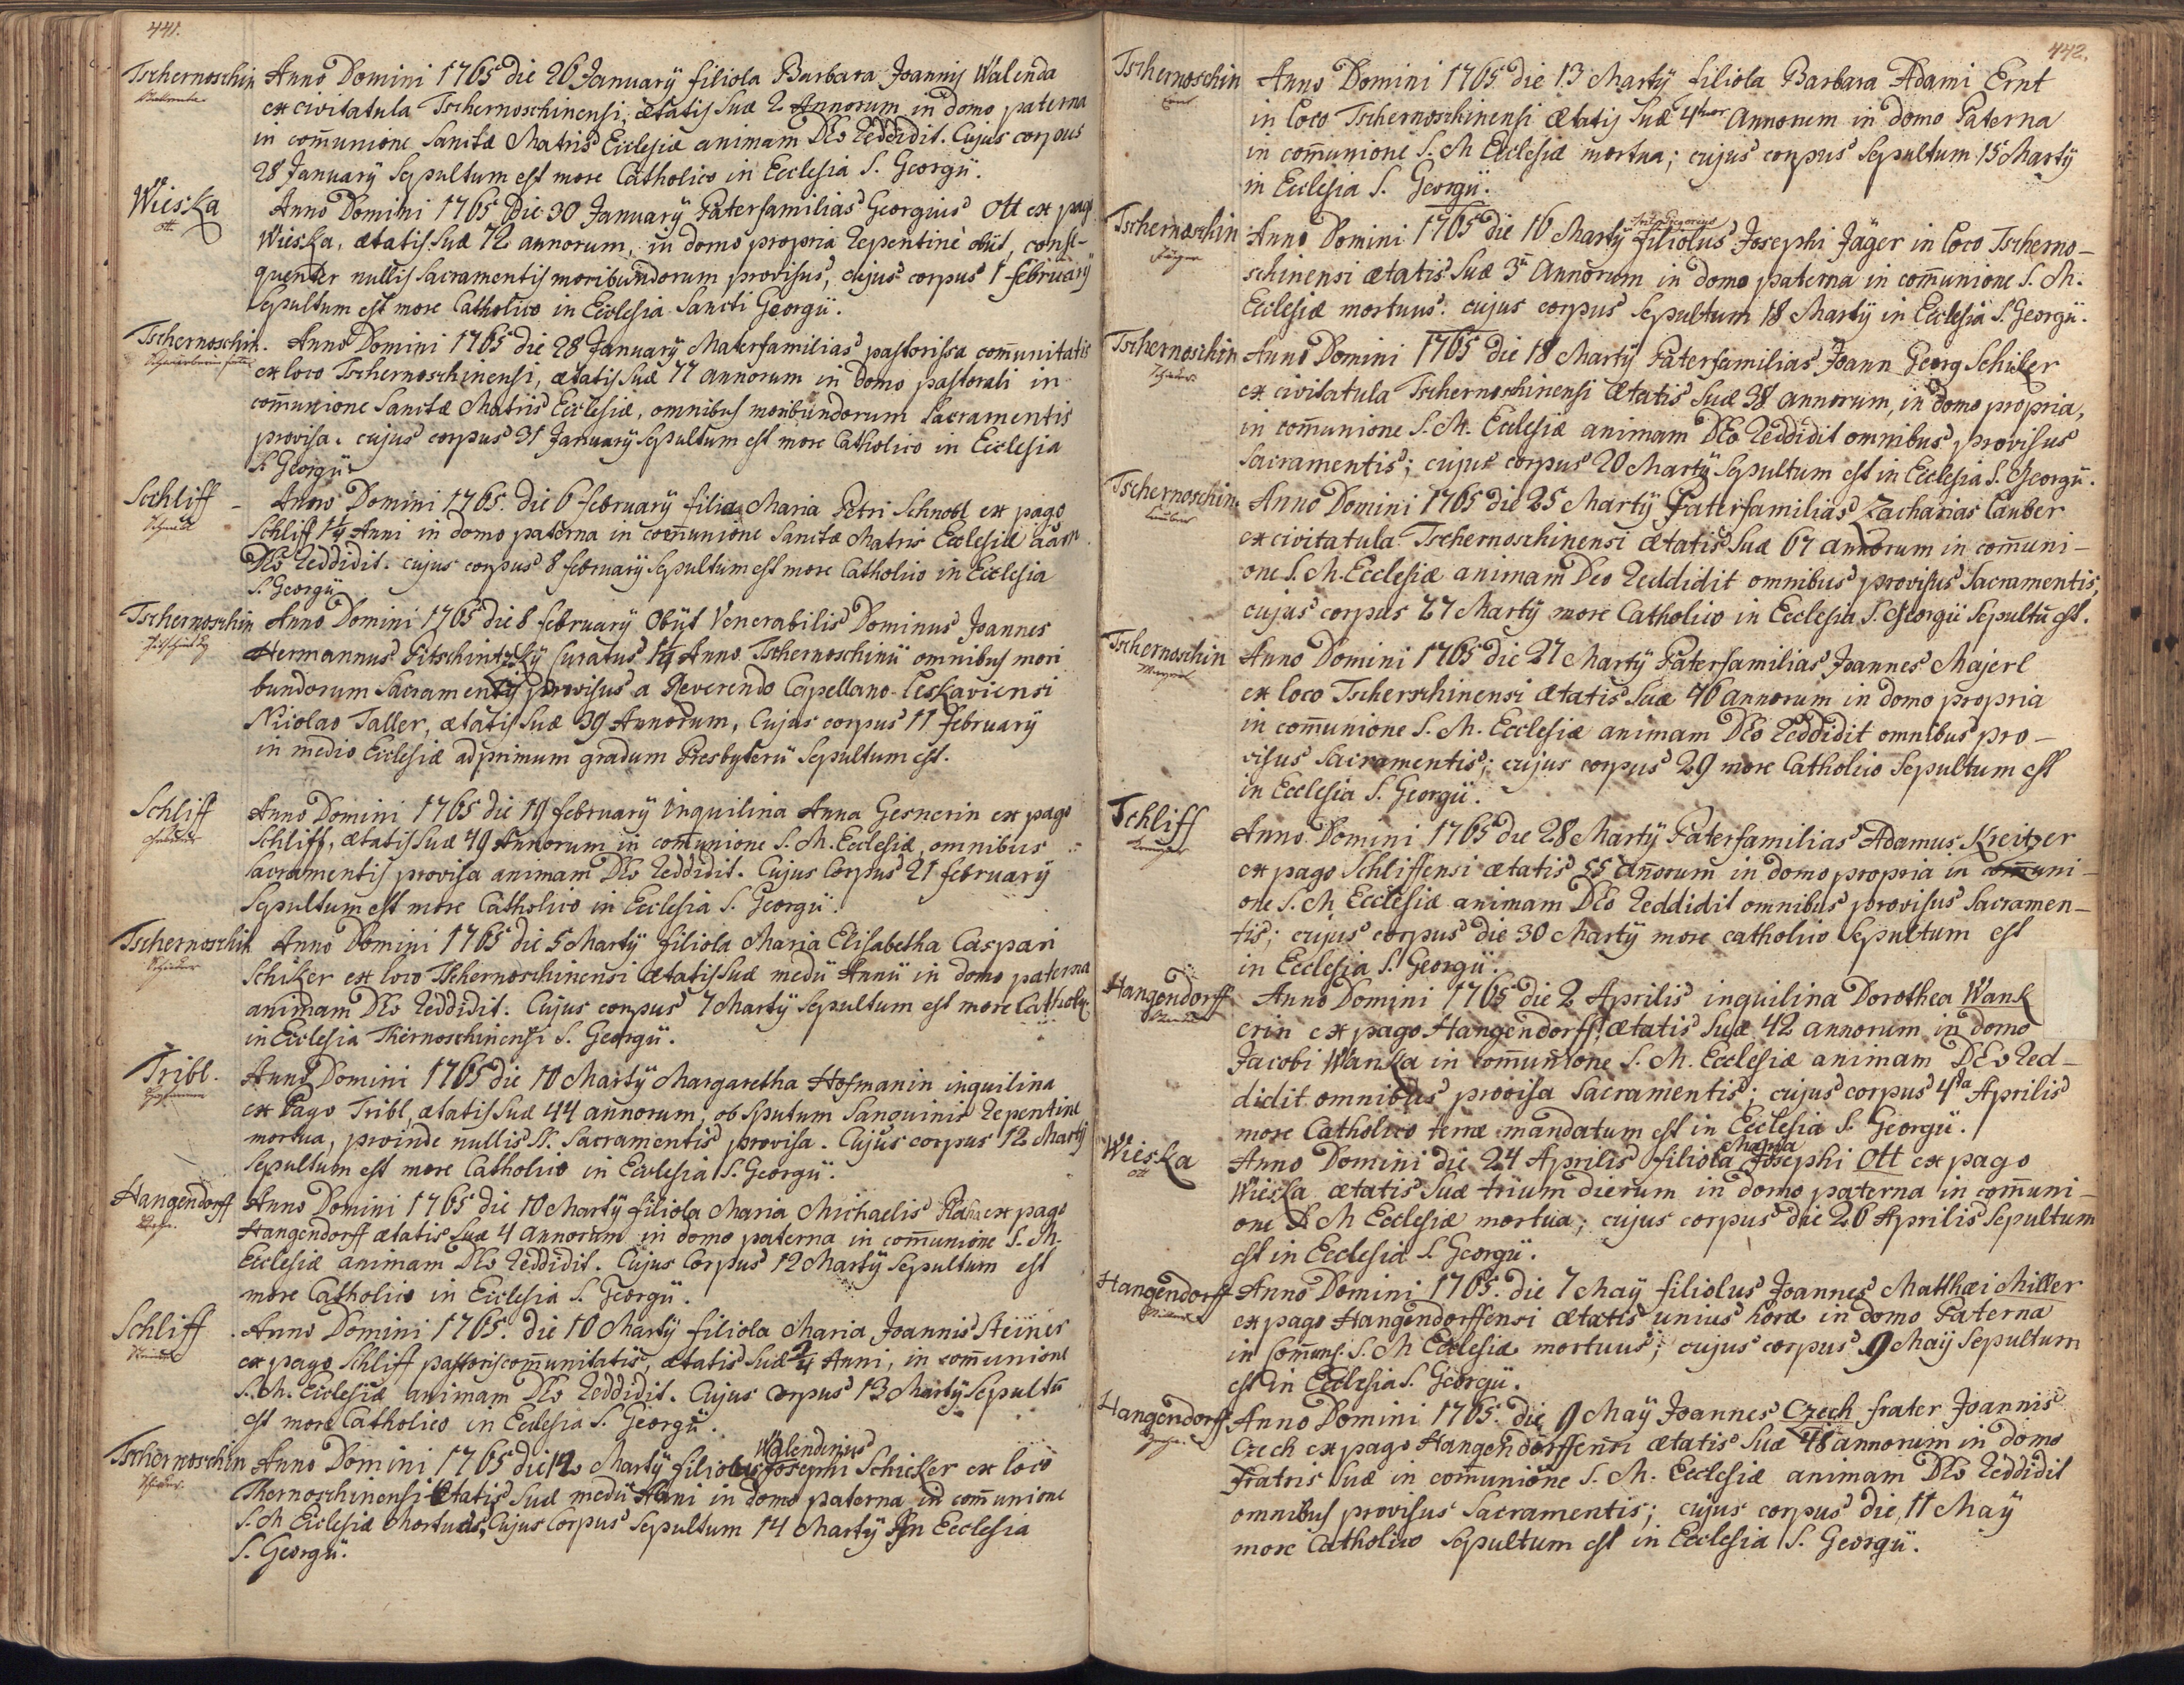 441.
Tschernoschin Anno Domini 1765 die 26 January filiola Barbara Joannis Walenda
ex civitatula Tschernoschinensi, ætatis suæ 2 Annorum in domo paterna
in com̄unione Sanctæ Matris Ecclesiæ animam DEo reddidit. Cujus corpus
28 January sepultum est more Catholico in Ecclesia S. Georgÿ.
Wieska Anno Domini 1765 Die 30 January Paterfamilias Georgius Ott ex pago
ott.
Wieska, ætatis suæ 72 annorum, in domo propria repentine obÿt, conse-
quenter nullis sacramentis moribundorum provisus, cujus corpus 1 february
sepultum est more Catholico in Ecclesia Sancti Georgÿ.
Tschernoschin. Anno Domini 1765 die 28 January Materfamilias pastorissa com̄unitatis
ex loco Tschernoschinensi, ætatis suæ 77 annorum in domo pastorali in
com̄unione Sanctæ Matris Ecclesiæ, omnibus moribundorum Sacramentis
provisa. cujus corpus 31 January sepultum est more Catholico in Ecclesia
S. Georgÿ.
Schliff - Anno Domini 1765. die 6 february filia Maria Petri Schnobl ex pago
Schliff 1¼ Anni in domo paterna in com̄unione Sanctæ Matris Ecclesiæ
DEo reddidit. cujus corpus 8 february sepultum est more Catholico in Ecclesia
S. Georgÿ
Tschernoschin Anno Domini 1765 die 8 february Obÿt Venerabilis Dominus Joannes
Hermannus Pitschintzky Curatus 1¼ Anno Tschernoschinÿ omnibus mori
bundorum Sacramentis provisus a Reverendo Capellano Leskaviensi
Nicolao Taller, ætatis suæ 39 Annorum, Cujus corpus 11 february
in medio Ecclesiæ ad primum gradum Presbyterÿ sepultum est.
Schliff Anno Domini 1765 die 19 february Inquilina Anna Gesnerin ex pago
Schliff, ætatis suæ 49 Annorum in com̄unione S. M. Ecclesiæ, omnibus
sacramentis provisa animam DEo reddidit. Cujus Corpus 21 february
sepultum est more Catholico in Ecclesia S. Georgÿ.
Tschernoschin Anno Domini 1765 die 5 Martÿ filiola Maria Elisabetha Caspari
Schiker ex loco Tschernoschinensi ætatis suæ medÿ Annÿ in domo paterna
animam DEo reddidit. Cujus corpus 7 Martÿ sepultum est more Catholi:
in Ecclesia Thernoschinensi S. Georgÿ.
Tribl. Anno Domini 1765 die 10 Martÿ Margaretha Hofmanin inquilina
ex Pago Tribl, ætatis suæ 44 annorum, ob sputum sanguinis repentine
mortua, proinde nullis SS. Sacramentis provisa. Cujus corpus 12 Martÿ
sepultum est more Catholico in Ecclesia S. Georgÿ.
Hangendorff Anno Domini 1765 die 10 Martÿ filiola Maria Michaelis ex pago
Hangendorff ætatis suæ 4 annorum in domo paterna in com̄unione S. M.
Ecclesiæ animam DEo reddidit. Cujus Corpus 12 Martÿ sepultum est
more Catholico in Ecclesia S. Georgÿ.
Schliff Anno Domini 1765. die 10 Martÿ filiola Maria Joannis Steiner
ex pago Schliff pastoris com̄unitatis, ætatis suæ ¾ Anni, in com̄unione
S. M. Ecclesiæ animam DEo reddidit. Cujus Corpus 13 Martÿ sepultū
est more Catholico in Ecclesia S. Georgÿ.
Walendinus
Tschernoschin Anno Domini 1765 die 12 Martÿ filiolus Josephi Schicker ex loco
Thernoschinensi Ætatis suæ medÿ Anni in domo paterna in com̄unione
S. M Ecclesiæ Mortuus, Cujus Corpus sepultum 14 Martÿ In Ecclesia
S. Georgÿ.
442.
Tschernoschin Anno Domini 1765 die 13 Martÿ filiola Barbara Adami Ernt
in loco Tschernoschinensi ætatis suæ 4tuor annorum in domo Paterna
in com̄unione S. M Ecclesiæ mortua; cujus corpus sepultum 15 Martÿ
in Ecclesia S. Georgÿ.
Gregorius
Tschernoschin Anno Domini 1765 die 16 Martÿ filiolus Josephi Jäger in loco Tscherno-
schinensi ætatis suæ 3 Annorum in domo paterna in com̄unione S. M.
Ecclesiæ mortuus: cujus corpus sepultum 18 Martÿ in Ecclesia S. Georgÿ.
Tschernoschin Anno Domini 1765 die 18 Martÿ Paterfamilias Joann Georg Schiker
ex civitatula Tschernoschinensi ætatis suæ 38 annorum, in domo propria,
in com̄unione S. M. Ecclesiæ animam DEo reddidit omnibus provisus
sacramentis; cujus corpus 20 Martÿ sepultum est in Ecclesia S. Georgÿ.
Tschernoschin Anno Domini 1765 die 25 Martÿ Paterfamilias Zacharias Lauber
ex civitatula Tschernoschinensi ætatis suæ 67 annorum in com̄uni-
one S. M. Ecclesiæ animam Deo reddidit omnibus provisus Sacramentis,
cujus corpus 27 Martÿ more Catholico in Ecclesia S. Georgÿ sepultū est.
Tschernoschin Anno Domini 1765 die 27 Martÿ Paterfamilias Joannes Majerl
ex loco Tscherschinensi ætatis suæ 46 annorum in domo propria
in com̄unione S. M. Ecclesiæ animam DEo reddidit omnibus pro-
visus sacramentis; cujus corpus 29 more Catholico sepultum est
in Ecclesia S. Georgÿ.
Schliff Anno Domini 1765 die 28 Martÿ Paterfamilias Adamus Kreitzer
ex pago Schliffensi ætatis 55 annorum in domo propria in com̄uni-
one S. M Ecclesiæ animam DEo reddidit omnibus provisus sacramen-
tis; cujus corpus die 30 Martÿ more catholico sepultum est
in Ecclesia S. Georgÿ.
Hangendorff Anno Domini 1765 die 2 Aprilis inquilina Dorothea Wank
erin ex pago Hangendorff, ætatis suæ 42 annorum in domo
Jacobi Wanka in com̄unione S. M. Ecclesiæ animam DEo red-
didit omnibus provisa sacramentis; cujus corpus 4ta Aprilis
more Catholico terræ mandatum est in Ecclesia S. Georgÿ.
Maria
Wieska Anno Domini die 24 Aprilis filiola Josephi Ott ex pago
ott
Wieska ætatis suæ trium dierum in domo paterna in com̄uni-
one S. M Ecclesiæ mortua; cujus corpus die 26 Aprilis sepultum
est in Ecclesia S. Georgÿ.
Hangendorff Anno Domini 1765. die 7 Maÿ filiolus Joannes Matthæi Miller
ex pago Hangendorffensi ætatis unius horæ in domo Paterna
in com̄uni. S. M Ecclesiæ mortuus; cujus corpus 9 Maÿ sepultum
est in Ecclesia S. Georgÿ.
Hangendorff Anno Domini 1765. die 9 Maÿ Joannes Czech frater Joannis
Czech ex pago Hangendorffensi ætatis suæ 48 annorum in domo
Fratris suæ in com̄unione S. M. Ecclesiæ animam DEo reddidit
omnibus provisus sacramentis; cujus corpus die 11 Maÿ
more Catholico sepultum est in Ecclesia S. Georgÿ.